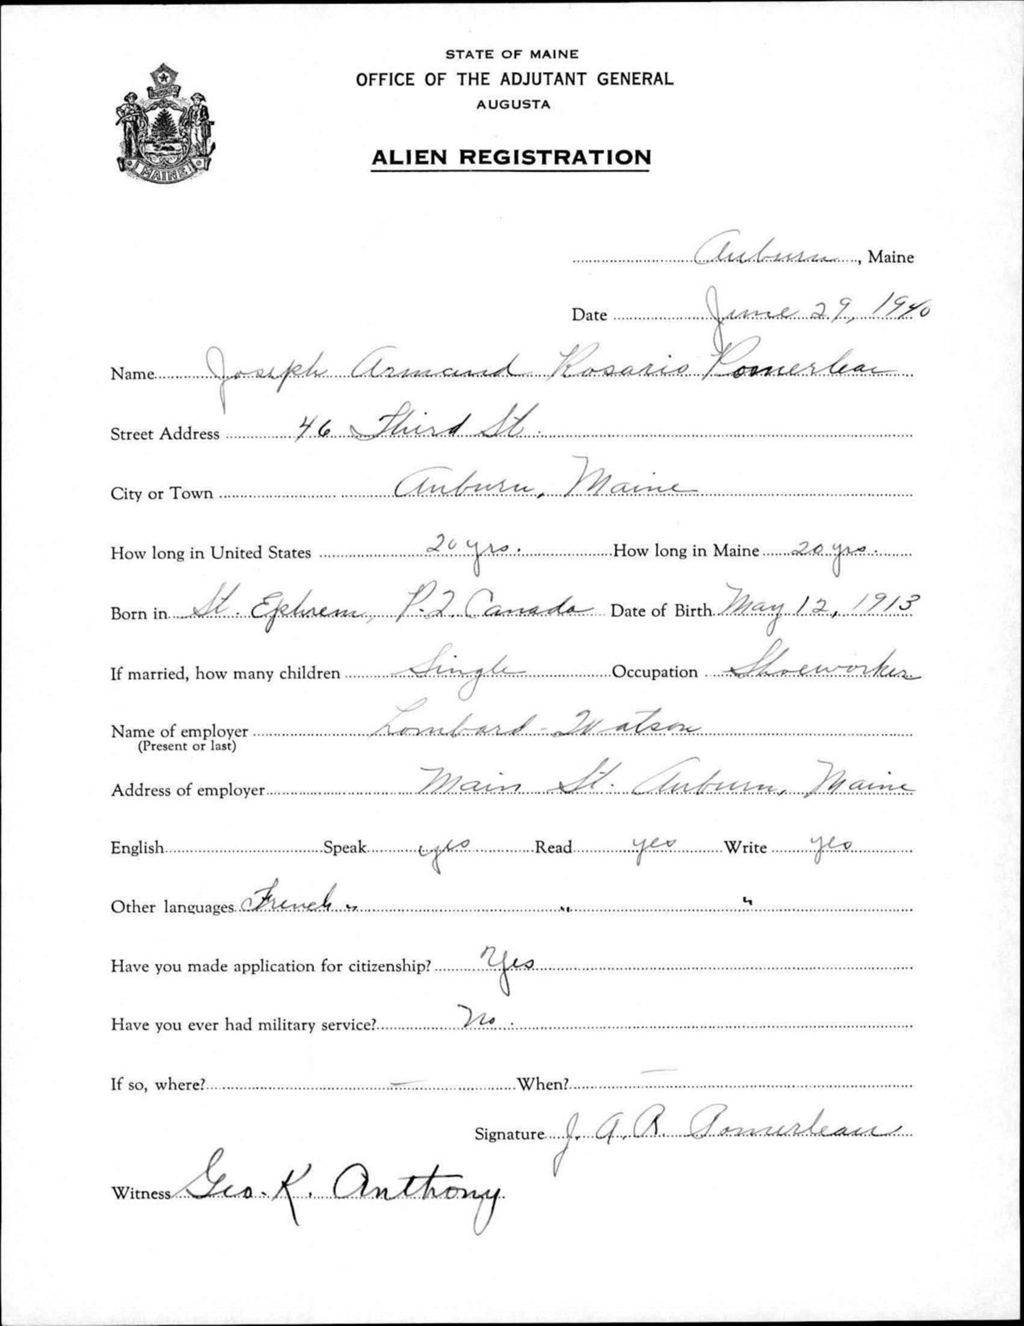 STATE OF MAINE
OFFICE OF THE ADJUTANT GENERAL
AUGUSTA
ALIEN REGISTRATION
MAINE
Auburn, Maine
Date June 29, 1940
Name Joseph Armand Rosario Pomerleau
Street Address 46 Third St.
City or Town Auburn, Maine
How long in United States 20 yrs. How long in Maine 20 yrs.
Born in St. Ephrem, P.Q. Canada Date of Birth May 12, 1913
If married, how many children Single Occupation Shoeworker
Name of employer Lombard-Watson
(Present or last)
Address of employer Main St. Auburn, Maine
English Speak yes Read yes Write yes
Other languages French " " "
Have you made application for citizenship? Yes
Have you ever had military service? No.
If so, where? — When? —
Signature J. A. R. Pomerleau
Witness Geo. K. Anthony